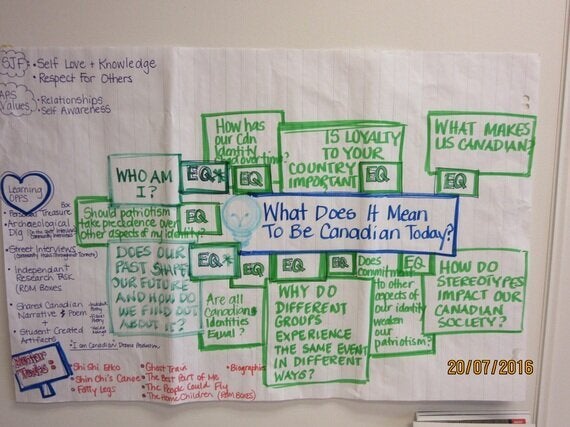 SJF: • Self Love + Knowledge
• Respect For Others
Values • Relationships
• Self Awareness
How has
our Can
identity
over time?
IS LOYALTY
TO YOUR
COUNTRY
IMPORTANT
WHAT MAKES
US CANADIAN?
WHO AM
I?
EQ*
EQ
EQ
EQ
Learning
OPPS
• Personal Treasure Box
• Archaeological
Dig
• Street Interviews
• Independant
Research Task
(ROM Boxes)
• Shared Canadian
Narrative & Poem
+
• Student Created
Artifacts
• I am Canadian Drama Production
Should patriotism
take precedence over
other aspects of my identity?
EQ
What Does It Mean
To Be Canadian Today?
DOES OUR
PAST SHAPE
OUR FUTURE
AND HOW DO
WE FIND OUT
ABOUT IT?
EQ*
Are all
Canadian
Identities
Equal?
EQ
WHY DO
DIFFERENT
GROUPS
EXPERIENCE
THE SAME EVENT
IN DIFFERENT
WAYS?
EQ
EQ
Does
commitment
to other
aspects of
our identity
weaken
our
patriotism?
EQ
HOW DO
STEREOTYPES
IMPACT OUR
CANADIAN
SOCIETY?
• Shi Shi Etko
• Shin Chi's Canoe
• Fatty Legs
• Ghost Train
• The Best Part of Me
• The People Could Fly
• The Home Children (ROM BOXES)
• Biographies
20/07/2016